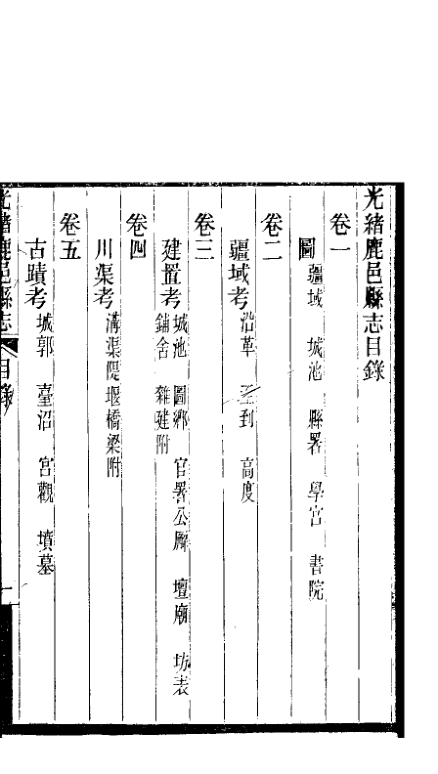 光緒鹿邑縣志目錄
卷一
圖 疆域 城池 縣署 學宮 書院
卷二
疆域考 沿革 至到 高度
卷三
建置考 城池 圖鄉 官署公廨 壇廟 坊表
鋪舍 雜建附
卷四
川渠考 溝渠隄堰橋梁附
卷五
古蹟考 城郭 臺沼 宮觀 墳墓
光緒鹿邑縣志 目錄 一